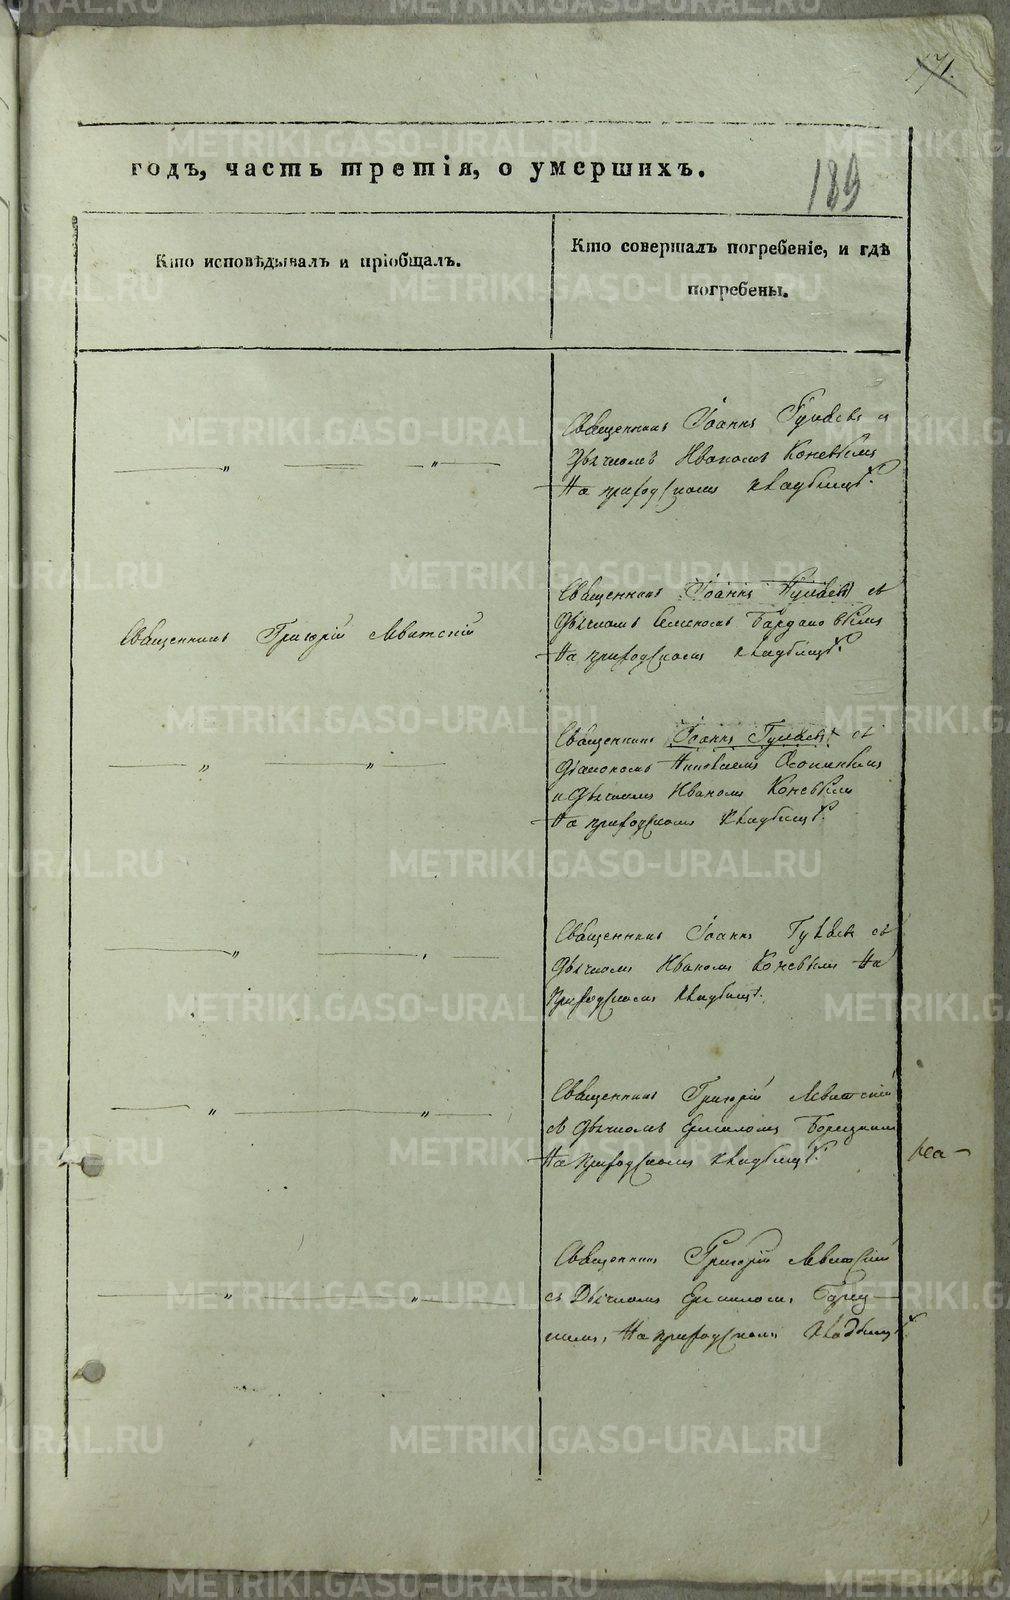 171.
189
годъ, часть третія, о умершихъ.
Кто исповѣдывалъ и пріобщалъ.
Кто совершалъ погребеніе, и гдѣ
погребены.
Священникъ Іоаннъ съ
Дьячкомъ Иваномъ Коневымъ
На приходскомъ кладбищѣ.
Священникъ Іоаннъ съ
Дьячкомъ Семеномъ
На приходскомъ кладбищѣ.
Священникъ Григорій Левитскій
Священникъ Іоаннъ съ
Діакономъ
и Дьячкомъ Иваномъ Коневымъ
На приходскомъ кладбищѣ.
Священникъ Іоаннъ съ
Дьячкомъ Иваномъ Коневымъ На
приходскомъ кладбищѣ.
Священникъ Григорій Левитскій
съ Дьячкомъ
На приходскомъ кладбищѣ.
Священникъ Григорій Левитскій
съ Дьячкомъ
На приходскомъ кладбищѣ.
METRIKI.GASO-URAL.RU